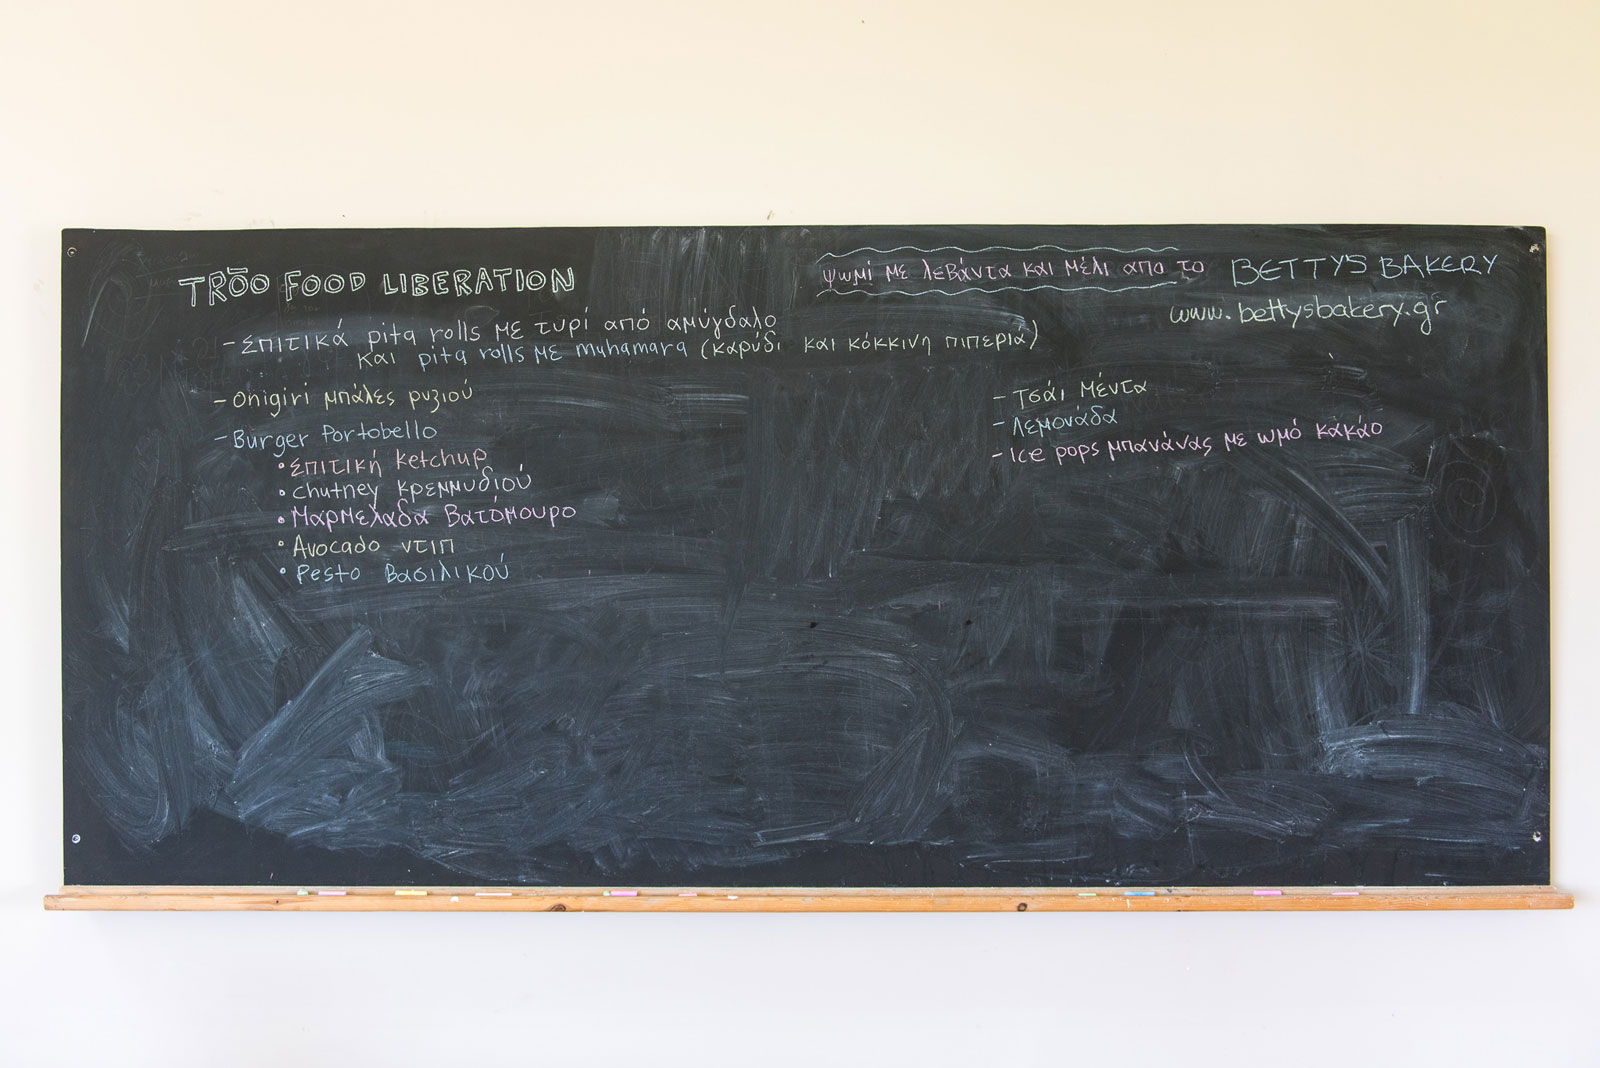 TRŌO FOOD LIBERATION
- Σπιτικά pita rolls με τυρί από αμύγδαλο
και pita rolls με muhamara (καρύδι και κόκκινη πιπεριά)
- Onigiri μπάλες ρυζιού
- Burger Portobello
• Σπιτική ketchup
• Chutney κρεμμυδιού
• Μαρμελάδα Βατόμουρο
• Avocado ντιπ
• Pesto Βασιλικού
Ψωμί με λεβάντα και μέλι απο το BETTY'S BAKERY
www.bettysbakery.gr
- Τσάι Μέντα
- Λεμονάδα
- Ice pops μπανάνας με ωμό κακάο